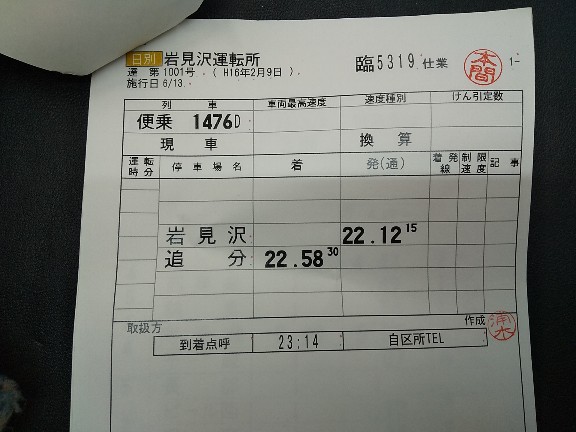 日別 岩見沢運転所 臨5319仕業 本間 1-
達 第1001号 . ( H16年2月9日 ) .
施行日 6/13.
列 車 車両最高速度 速度種別 けん引定数
便乗 1476D
現 車 換 算
運転時分 停 車 場 名 着 発(通) 着発線 制限速度 記 事
岩 見 沢 22.12 15
追 分 22.58 30
取扱方 作成
到着点呼 23:14 自区所TEL